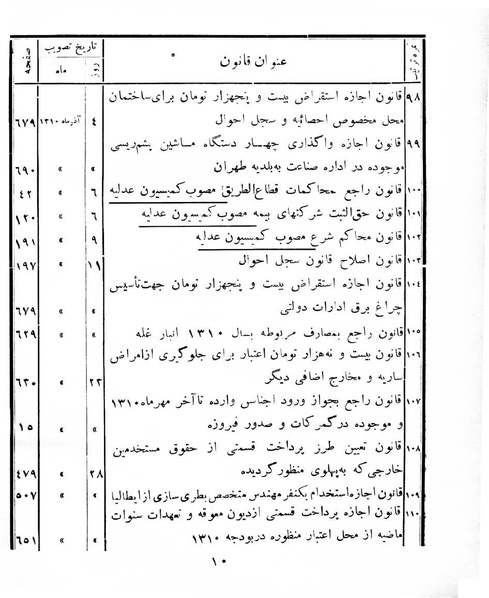 نمره ترتیب
عنوان قانون
تاریخ تصویب
روز
ماه
صفحه
۹۸ قانون اجازه استقراض بیست و پنجهزار تومان برای ساختمان
محل مخصوص احصائیه و سجل احوال ۴ آذرماه ۱۳۱۰ ۶۷۹
۹۹ قانون اجازه واگذاری چهار دستگاه ماشین پشم‌ریسی
موجوده در اداره صناعت به‌بلدیه طهران » » ۶۹۰
۱۰۰ قانون راجع بمحاکمات قطاع‌الطریق مصوب کمیسیون عدلیه ۶ » ۴۲
۱۰۱ قانون حق‌الثبت شرکتهای بیمه مصوب کمیسیون عدلیه ۶ » ۱۲۰
۱۰۲ قانون محاکم شرع مصوب کمیسیون عدلیه ۹ » ۱۹۱
۱۰۳ قانون اصلاح قانون سجل احوال ۱۱ » ۱۹۷
۱۰۴ قانون اجازه استقراض بیست و پنجهزار تومان جهت‌تأسیس
چراغ برق ادارات دولتی » » ۶۷۹
۱۰۵ قانون راجع بمصارف مربوطه بسال ۱۳۱۰ انبار غله » » ۶۲۹
۱۰۶ قانون بیست و نه‌هزار تومان اعتبار برای جلوگیری ازامراض
ساریه و مخارج اضافی دیگر ۲۲ » ۶۳۰
۱۰۷ قانون راجع بجواز ورود اجناس وارده تاآخر مهرماه ۱۳۱۰
و موجوده درگمرکات و صدور فیروزه » » ۱۵
۱۰۸ قانون تعیین طرز پرداخت قسمتی از حقوق مستخدمین
خارجی که به‌پهلوی منظورگردیده ۲۸ » ۴۷۹
۱۰۹ قانون اجازه استخدام یکنفر مهندس متخصص بطری سازی از ایطالیا » » ۵۰۷
۱۱۰ قانون اجازه پرداخت قسمتی ازدیون معوقه و تعهدات سنوات
ماضیه از محل اعتبار منظوره دربودجه ۱۳۱۰ » » ۶۵۱
۱۰